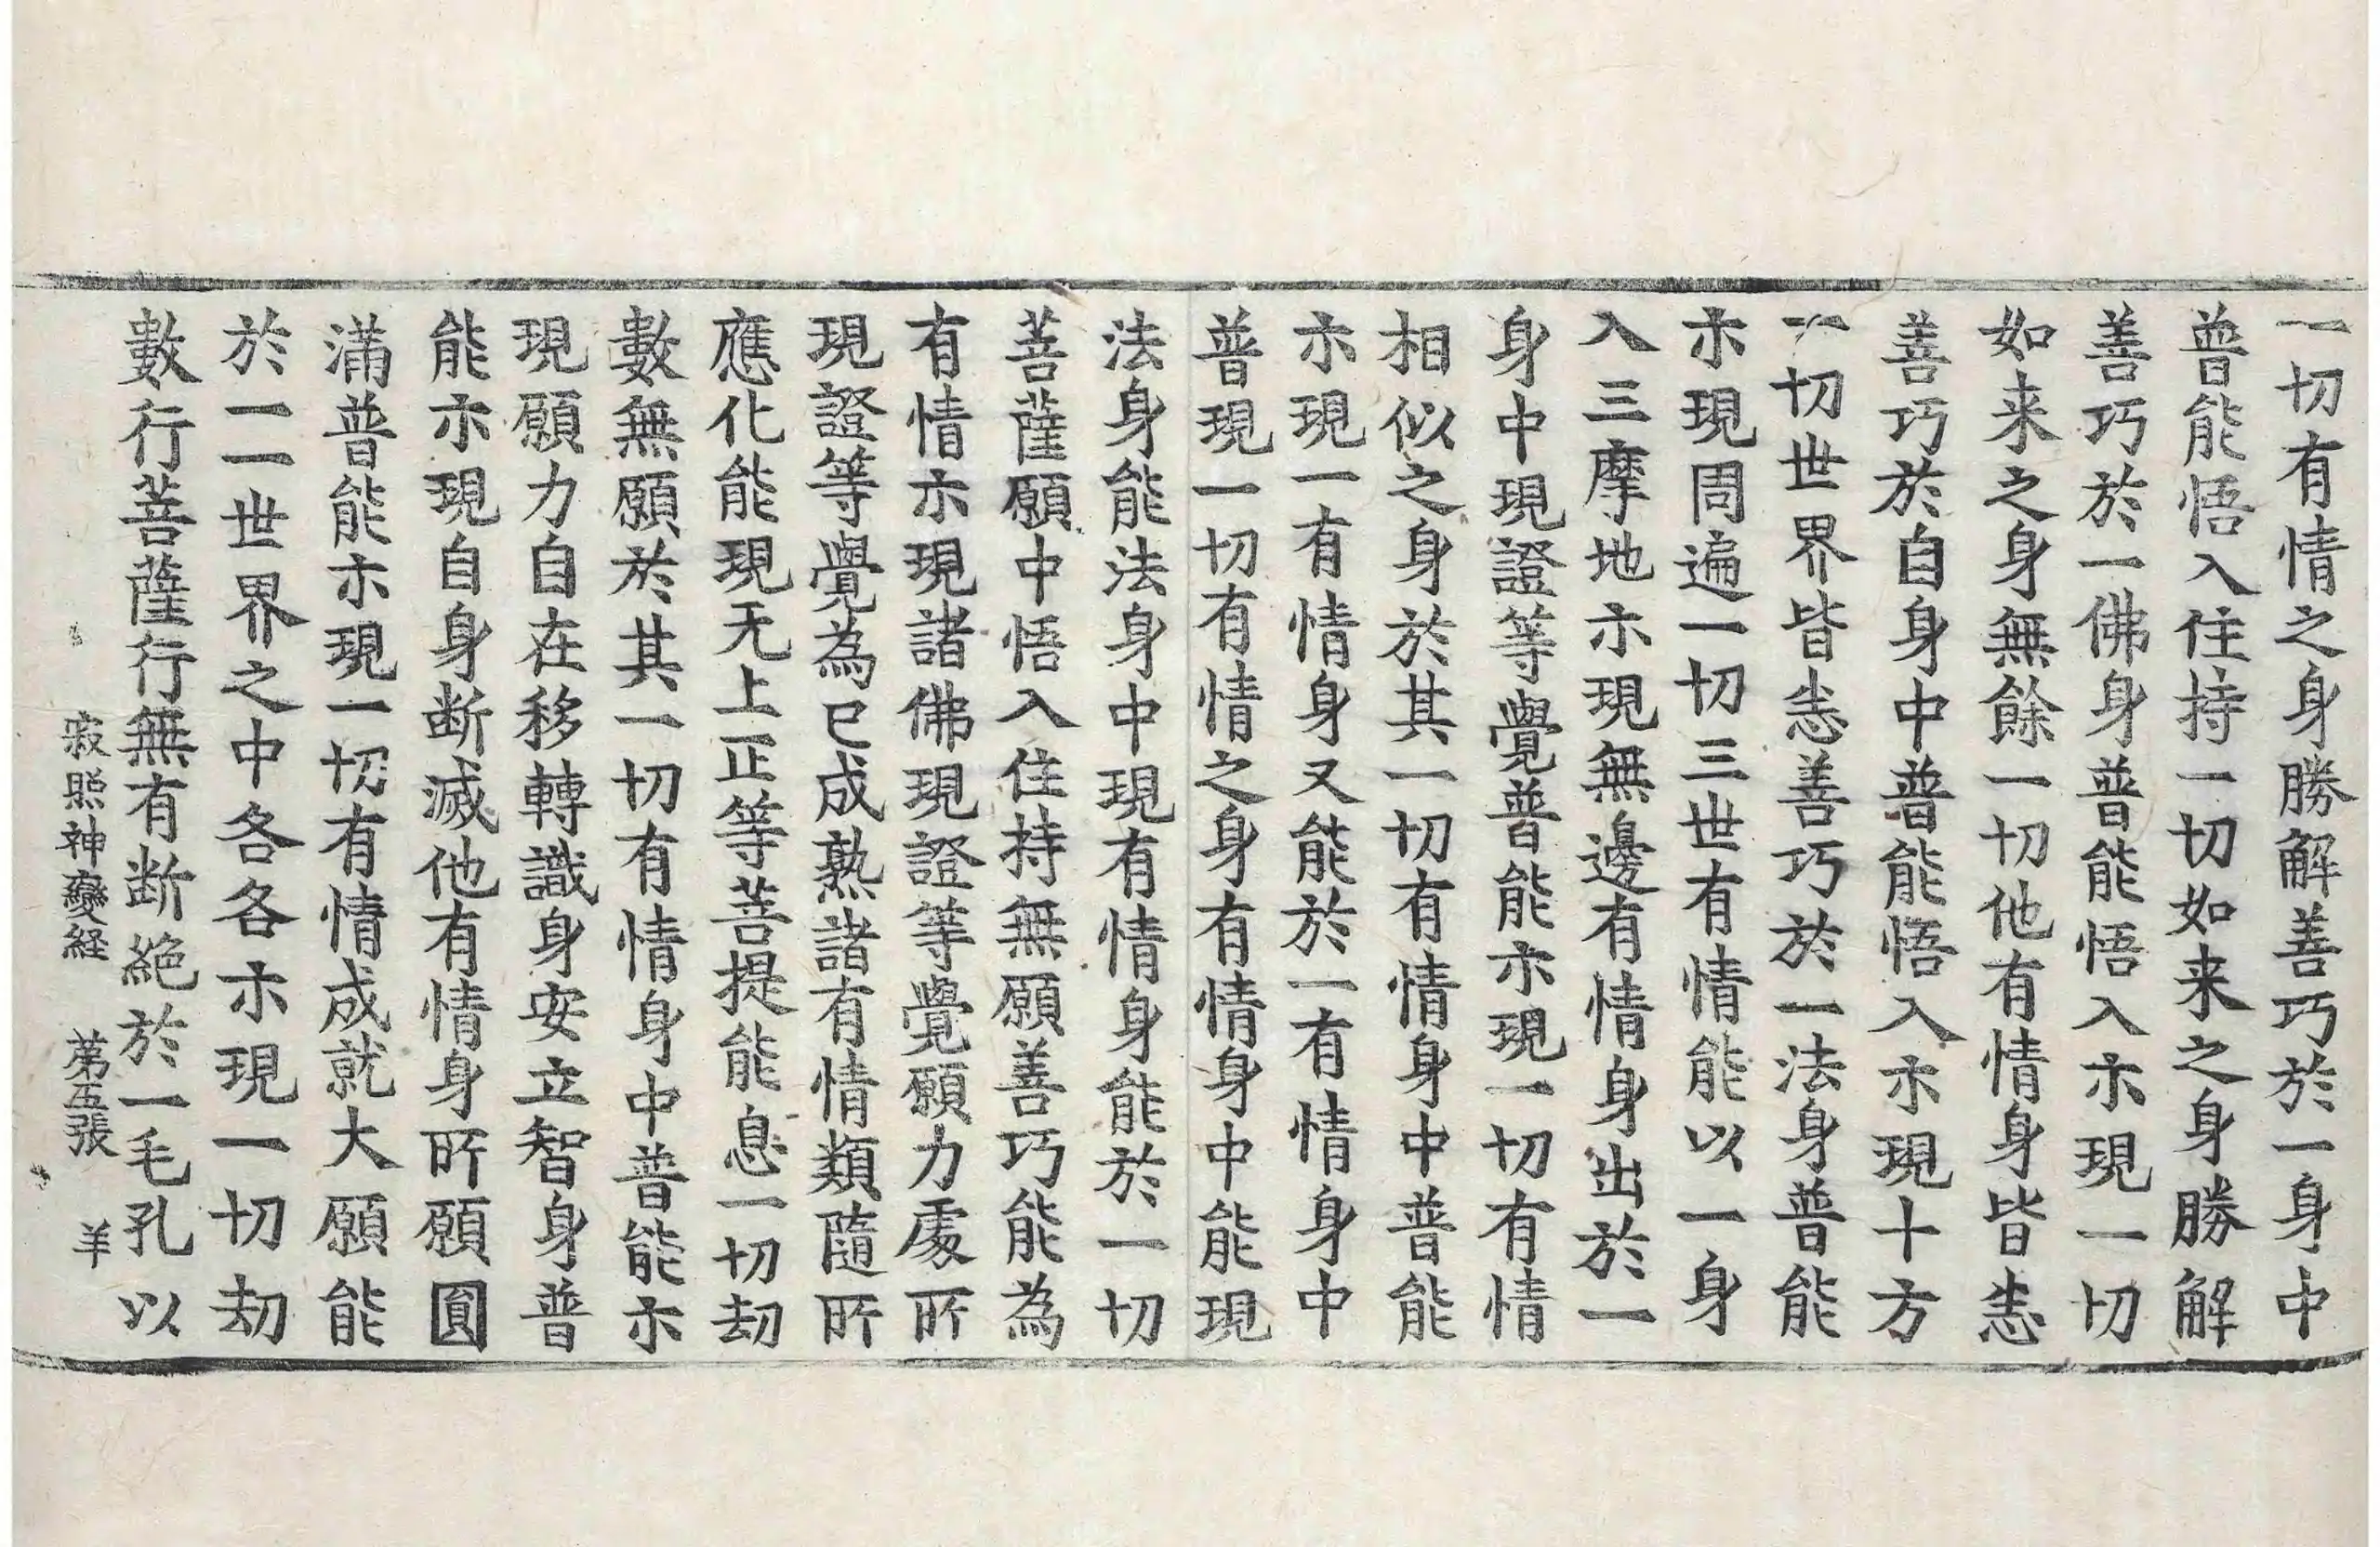 一切有情之身勝解善巧於一身中
普能悟入住持一切如来之身勝解
善巧於一佛身普能悟入示現一切
如来之身無餘一切他有情身皆悉
善巧於自身中普能悟入示現十方
一切世界皆悉善巧於一法身普能
示現周遍一切三世有情能以一身
入三摩地示現無邊有情身出於一
身中現證等覺普能示現一切有情
相似之身於其一切有情身中普能
示現一有情身又能於一有情身中
普現一切有情之身有情身中能現
法身能法身中現有情身能於一切
菩薩願中悟入住持無願善巧能為
有情示現諸佛現證等覺願力處所
現證等覺為已成熟諸有情類隨所
應化能現无上正等菩提能息一切劫
數無願於其一切有情身中普能示
現願力自在移轉識身安立智身普
能示現自身断滅他有情身所願圓
滿普能示現一切有情成就大願能
於一一世界之中各各示現一切劫
數行菩薩行無有断絶於一毛孔以
寂照神變経 第五張 羊